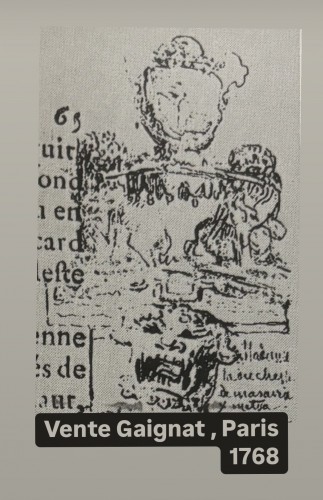 65
uit
ond
n en
card
leste
enne
és de
our,
la
de
Vente Gaignat , Paris
1768